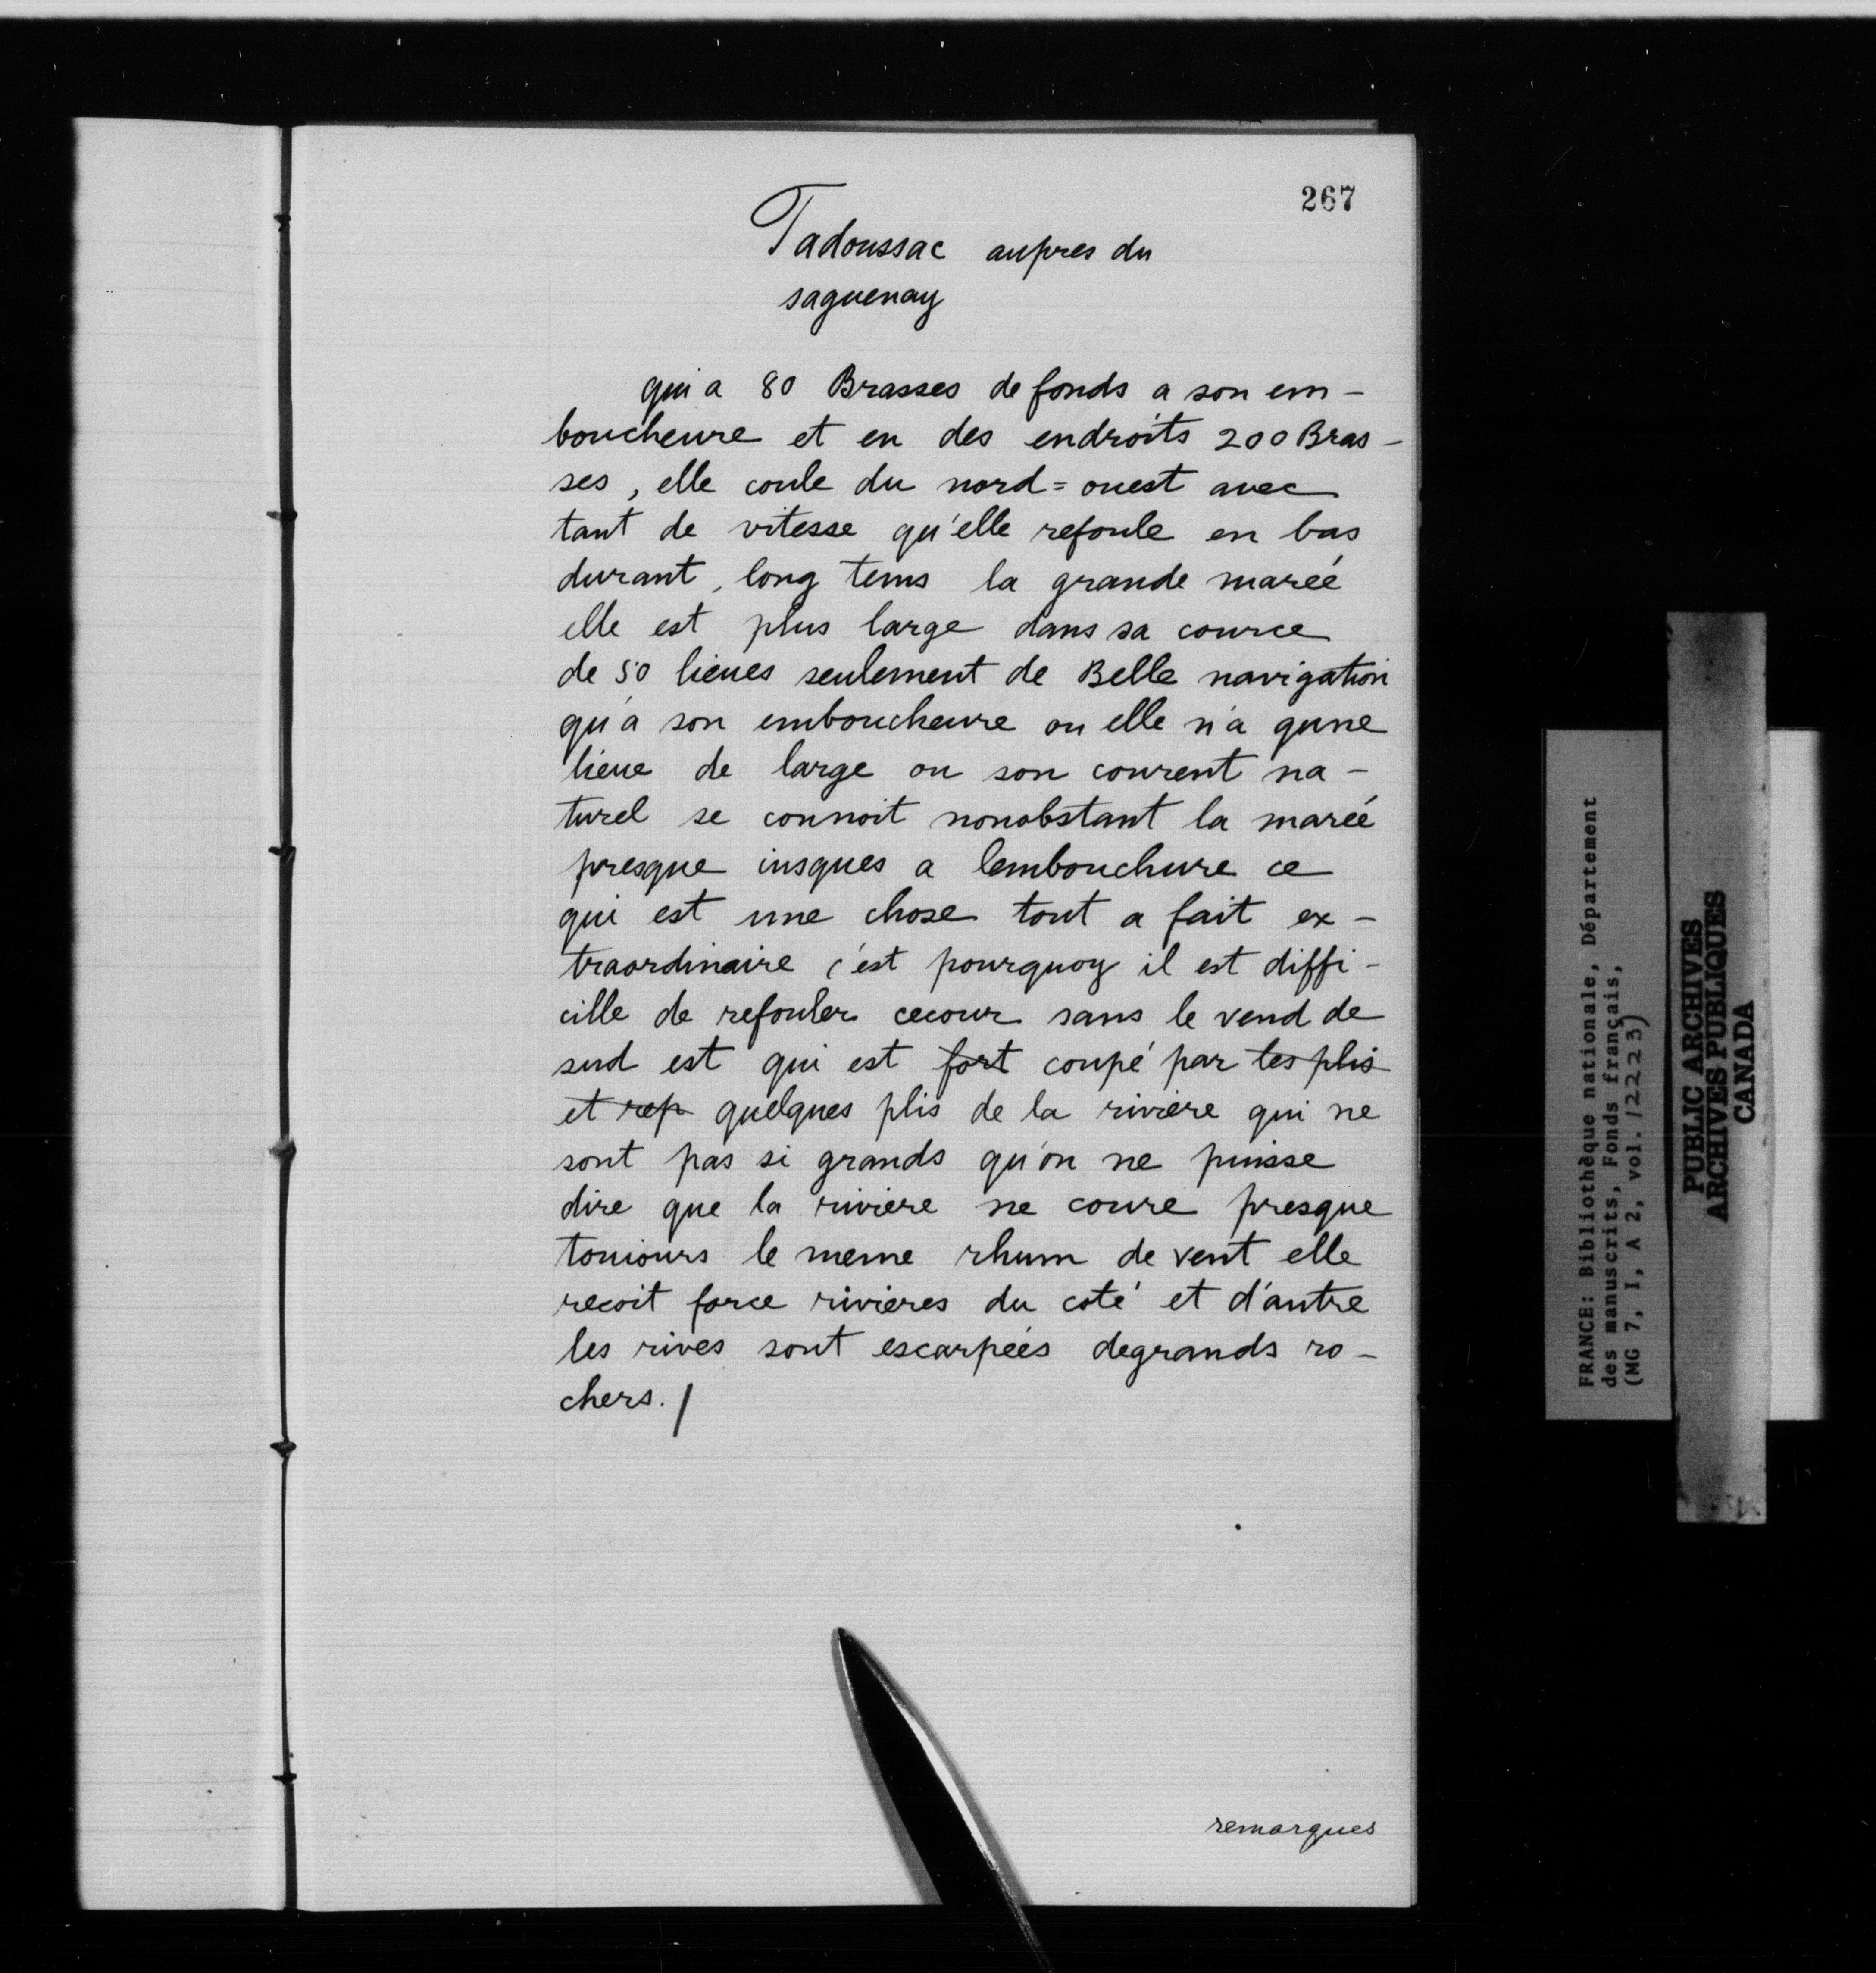 267
Tadoussac aupres du
saguenay
qui a 80 Brasses de fonds a son em-
boucheure et en des endroits 200 Bras-
ses, elle coule du nord=ouest avec
tant de vitesse qu'elle refoule en bas
durant, long tems la grande mareé
elle est plus large dans sa cource
de 50 lieues seulement de Belle navigation
qu'a son emboucheure ou elle n'a qune
lieue de large ou son courent na-
turel se connoit nonobstant la mareé
presque iusques a lembouchure ce
qui est une chose tout a fait ex-
traordinaire c'est pourquoy il est diffi-
cille de refouler cecour sans le vend de
sud est qui est fort coupé par les plis
et rep quelques plis de la riviere qui ne
sont pas si grands qu'on ne puisse
dire que la riviere ne coure presque
touiours le meme rhum de vent elle
recoit force rivieres du coté et d'autre
les rives sont escarpeés degrands ro-
chers./
remarques
FRANCE: Bibliothèque nationale, Département
des manuscrits, Fonds français,
(MG 7, I, A 2, vol. 12223)
PUBLIC ARCHIVES
ARCHIVES PUBLIQUES
CANADA